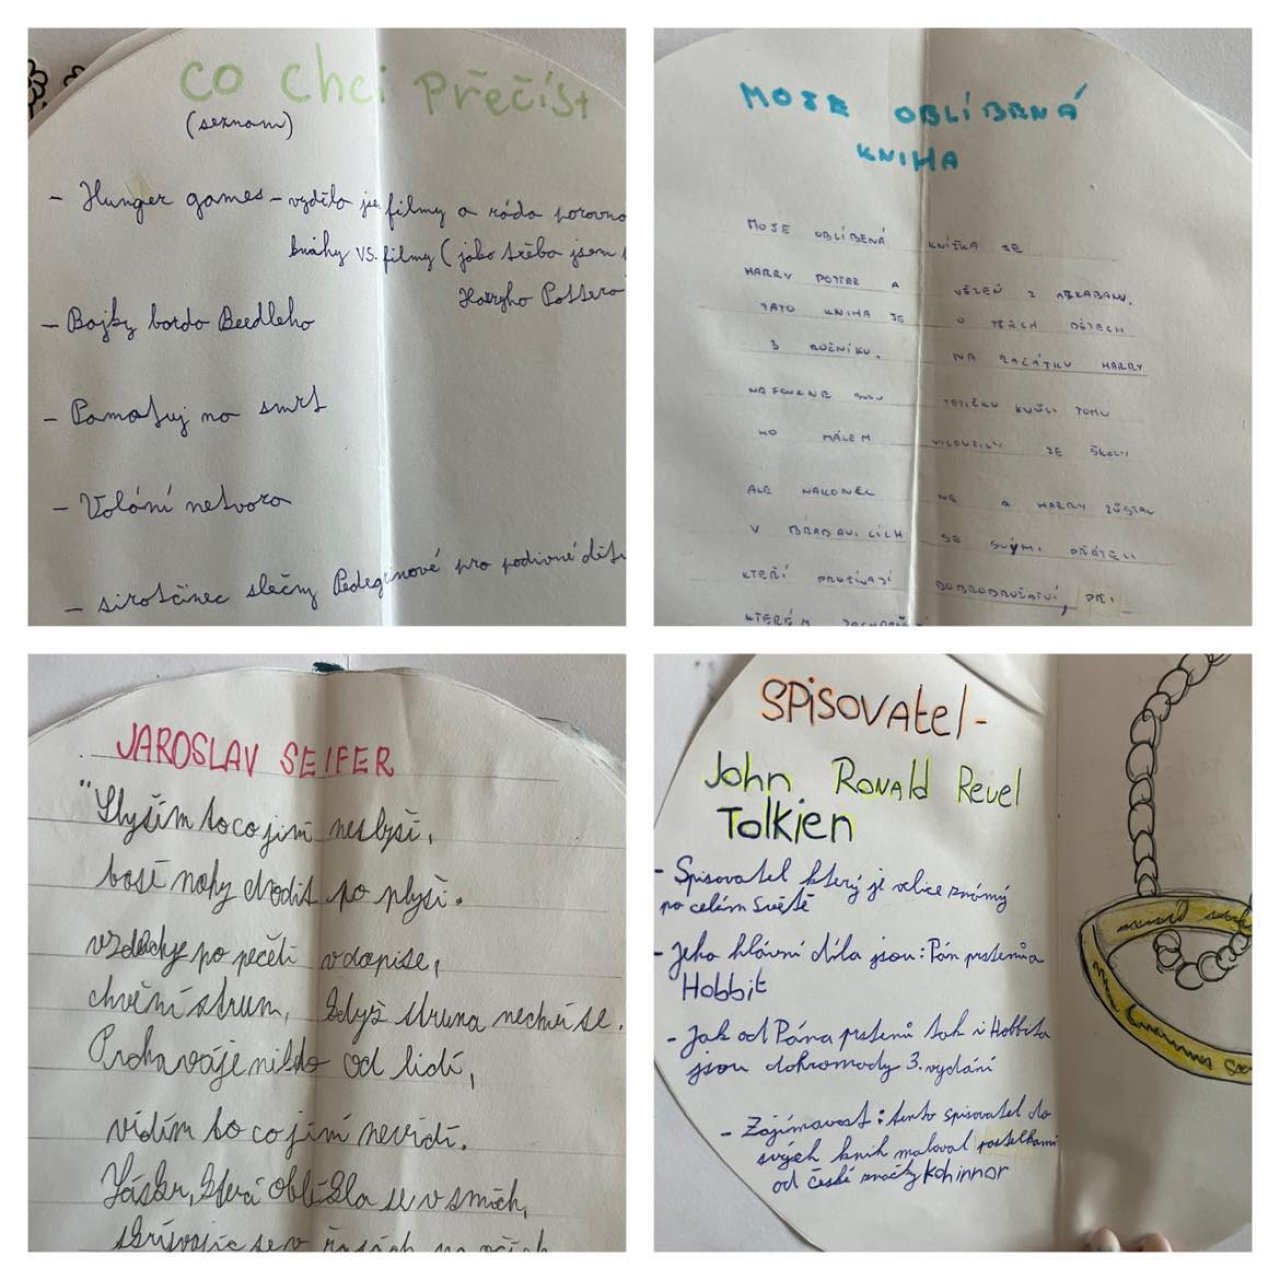 co chci přečíst
(seznam)
- Hunger games - vyděla jse filmy a ráda porovna
knihy vs. filmy ( jako třeba jsem
Harryho Pottera
- Bajky barda Beedleho
- Pamatuj na smrt
- Volání netvora
- sirotčinec slečny Pedegrinové pro podivné dět
MOJE OBLÍBENÁ
KNIHA
MOJE OBLÍBENÁ KNÍŽKA JE
HARRY POTTER A VĚZEŇ Z AZKABANU.
TATO KNIHA JE O TĚCH DĚTACH
3 ROČNÍKU. NA ZAČÁTKU HARRY
NAFOUKNE SVOU TETIČKU KVŮLI TOMU
HO MÁLEM VYLOUČILI ZE ŠKOLY
ALE NAKONEC NE A HARRY ZŮSTAL
V BRADAVICÍCH SE SVÝMI PŘÁTELI
KTEŘÍ PROŽÍVAJÍ DOBRODRUŽSTVÍ, PŘI
KTERÉM
JAROSLAV SEIFER
"Slyším to co jiní neslyší,
bosé nohy chodit po plyši.
vzdechy po pečetí v dopise,
chvění strun, když struna nechví se.
Prchavaje někdo od lidí,
vidím to co jiní nevidí.
Lásku, která oblékla se v smích,
skrývajíc se v řasách na očích
SPISOVAtel -
John RONAld Reuel
Tolkien
- Spisovatel který je velice známý
po celém Světě
- Jeho hlavní díla jsou: Pán prstenů a
Hobbit
- Jak od Pána prstenů tak i Hobbita
jsou dohromady 3. vydání
- Zajímavost: tento spisovatel do
svých knih maloval pastelkami
od české značky kohinnor